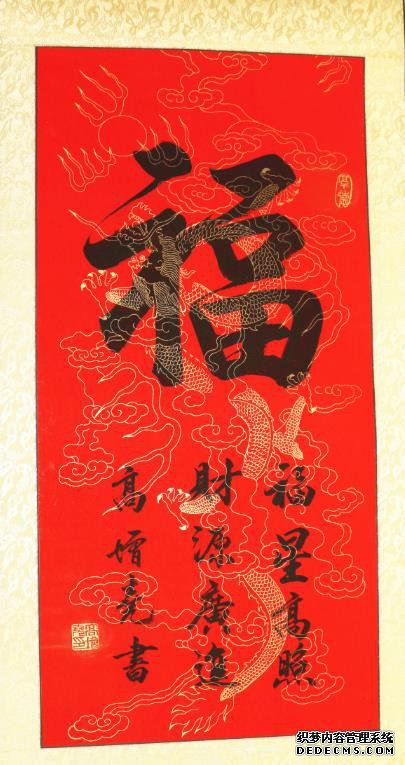 福
福星高照
財源廣進
高亮書
织梦内容管理系统
DEDECMS.COM